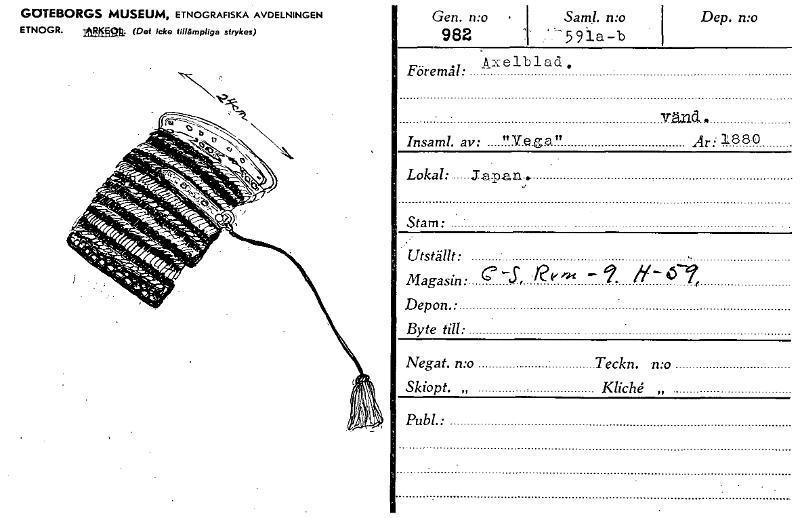 GÖTEBORGS MUSEUM, ETNOGRAFISKA AVDELNINGEN
ETNOGR. ARKEOL. (Det icke tillämpliga strykes)
24cm
Gen. n:o Saml. n:o Dep. n:o
982 591a-b
Föremål: Axelblad.
vänd.
Insaml. av: "Vega" År: 1880
Lokal: Japan.
Stam:
Utställt:
Magasin: C-S. Rum-9. H-59.
Depon.:
Byte till:
Negat. n:o Teckn. n:o
Skiopt. „ Kliché „
Publ.: